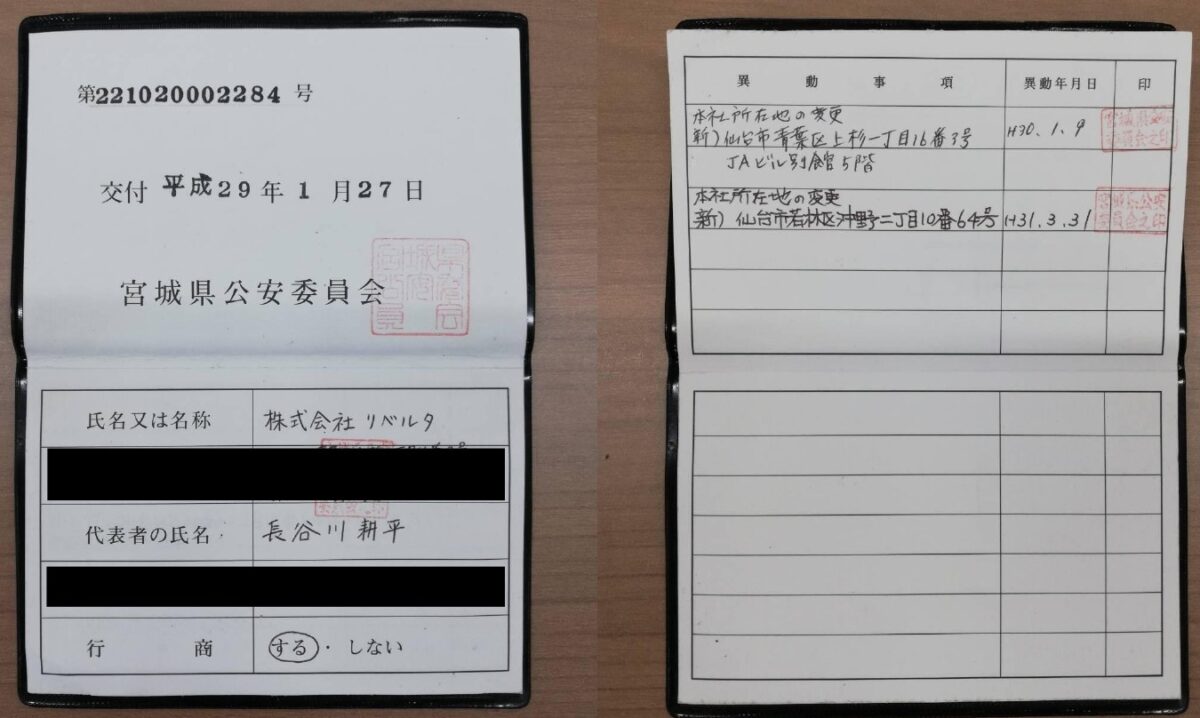 第221020002284号
交付 平成29年1月27日
宮城県公安委員会
氏名又は名称 株式会社リベルタ
代表者の氏名 長谷川耕平
行商 する・しない
異動事項 異動年月日 印
本社所在地の変更
新)仙台市青葉区上杉一丁目16番3号 H30.1.9
JAビル別館5階
本社所在地の変更
新)仙台市若林区沖野二丁目10番64号 H31.3.31